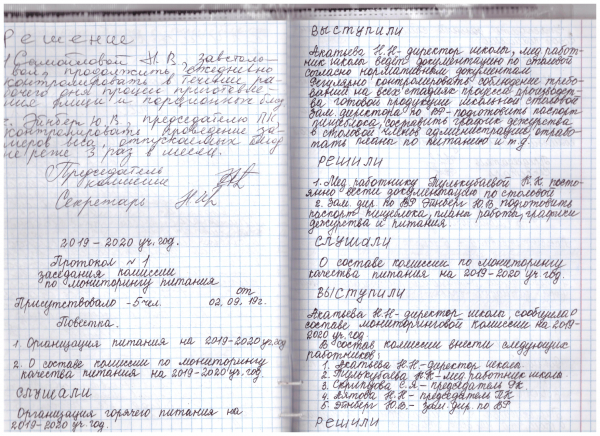 Решение
1 Самойловой Н. В, зав столо
вой продолжить ежедневно
контролировать в течение ра
бочего дня процесс приготовле-
ния пищи и порционных блюд
2. Эйнберг Ю. В, председателю ПК
контролировать проведение за-
меров веса, отпускаемых блюд
не реже 3 раз в месяц.
Председатель
комиссии
Секретарь
2019-2020 уч. год.
Протокол №1
заседания комиссии
по мониторингу питания
от
Присутствовало -5 чел. 02. 09. 19г.
Повестка.
1. Организация питания на 2019-2020 уч.год
2. О составе комиссии по мониторингу
качества питания на 2019-2020 уч. год
СЛУШАЛИ
Организация горячего питания на
2019-2020 уч. год.
ВЫСТУПИЛИ
Акатьева Н.Н- директор школы, мед работ-
ник школы ведет документацию по столовой
согласно нормативным документам
Регулярно контролировать соблюдение требо-
ваний на всех стадиях процесса производст-
ва готовой продукции школьной столовой
Зам директора по ВР-подготовить паспорт
пищеблока, составить график дежурства
в столовой членов администрации, отрабо-
тать планы по питанию и т.д.
РЕШИЛИ
1. Мед работнику Тулькубаевой К.К посто-
янно вести документацию по столовой
2. Зам. дир по ВР Эйнберг Ю.В подготовить
паспорт пищеблока, плана работы, графики
дежурства и питания.
СЛУШАЛИ
О составе комиссии по мониторингу
качества питания на 2019-2020 уч год.
ВЫСТУПИЛИ
Акатьева Н.Н- директор школы, сообщила о
составе мониторинговой комиссии на 2019-
2020 уч. год
В состав комиссии внести следующих
работников:
1. Акатьева Н.Н.- директор школы
2. Тулькубаева К.К- мед работник школы
3. Скрипцова С.Я- председатель РК
4. Лятова Н.Н - председатель ПК
5. Эйнберг Ю.В.- зам. дир. по ВР
РЕШИЛИ